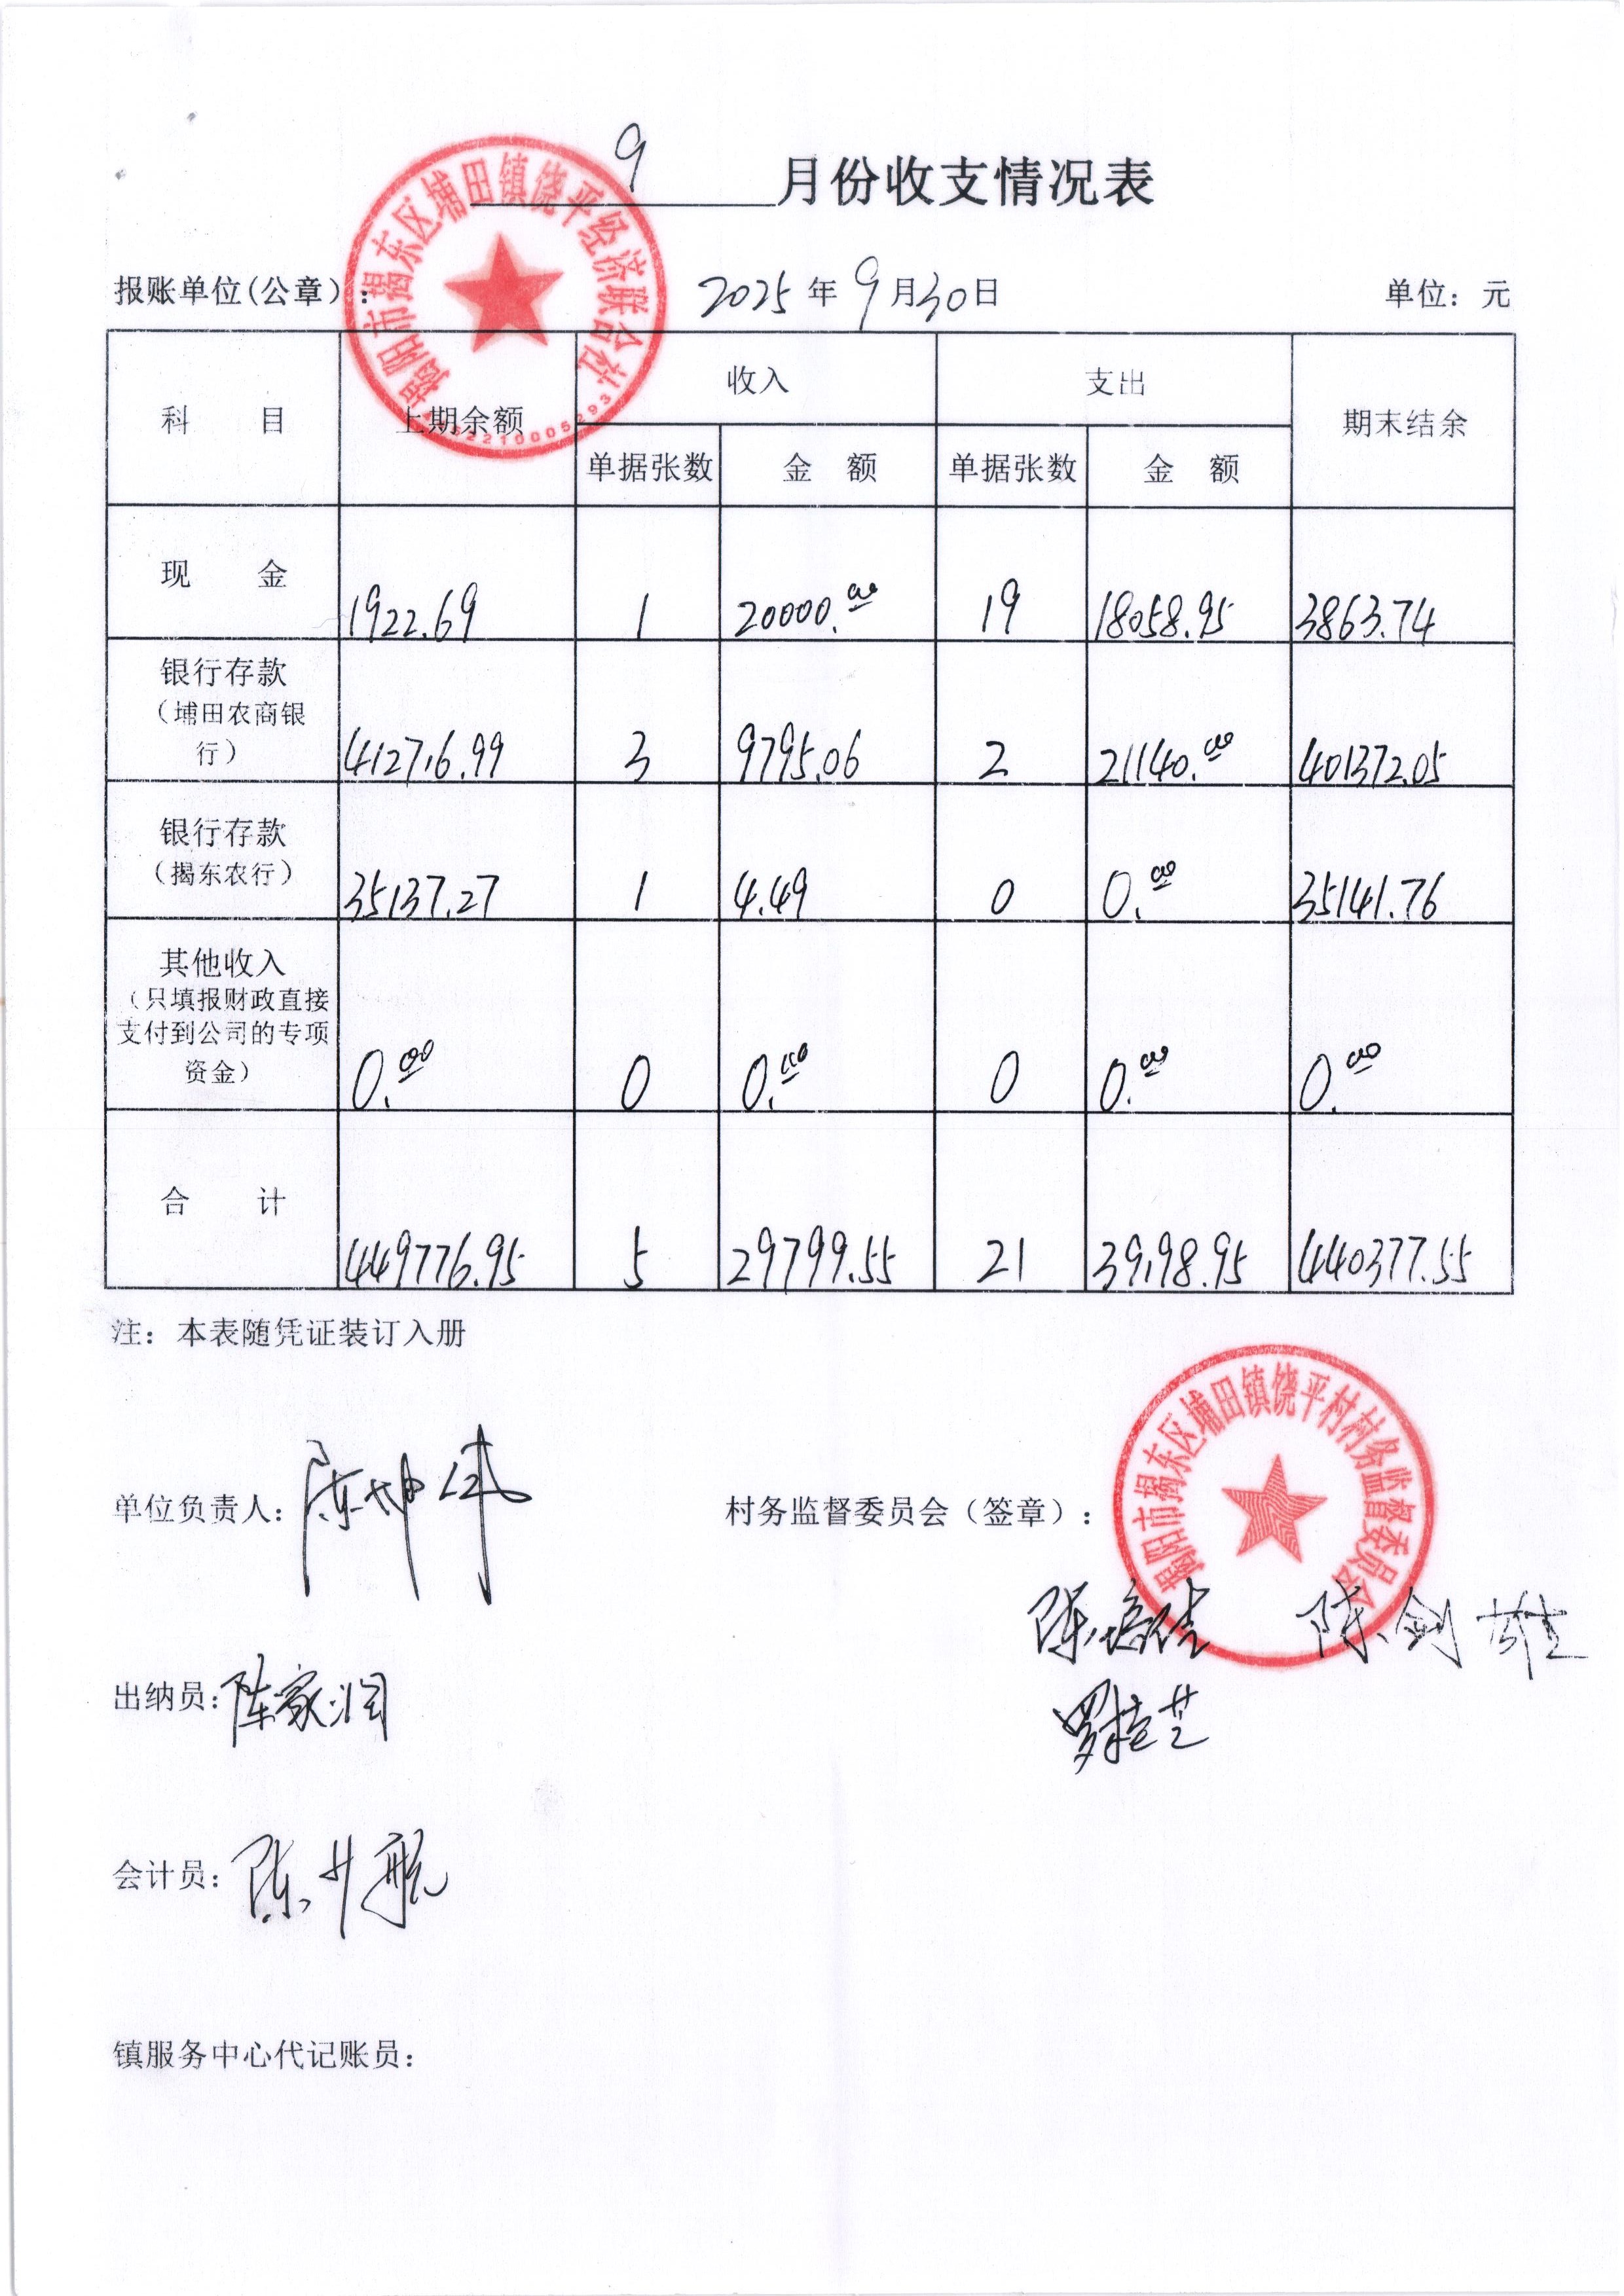 9月份收支情况表
揭阳市揭东区埔田镇饶平经济联合社
报账单位(公章): 2025年9月30日 单位：元
科 目 上期余额 收入 支出 期末结余
单据张数 金 额 单据张数 金 额
现 金 1922.69 1 20000.00 19 18058.95 3863.74
银行存款
（埔田农商银
行） 412716.99 3 9795.06 2 21140.00 401372.05
银行存款
（揭东农行） 35137.27 1 4.49 0 0.00 35141.76
其他收入
（只填报财政直接
支付到公司的专项
资金） 0.00 0 0.00 0 0.00 0.00
合 计 449776.95 5 29799.55 21 39198.95 440377.55
注：本表随凭证装订入册
揭阳市揭东区埔田镇饶平村村务监督委员会
单位负责人：陈坤伟 村务监督委员会（签章）：
陈剑雄
出纳员：陈家润
罗桂芝
会计员：陈少航
镇服务中心代记账员：